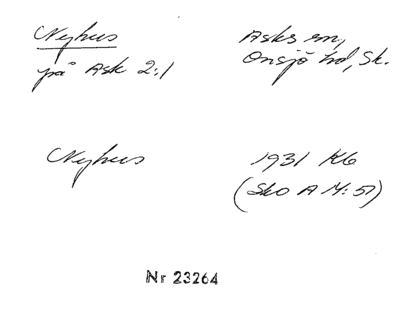 Nyhus
på Ask 2:1
Asks sn,
Onsjö hd, Sk.
Nyhus
1931 K6
(Sko A M:51)
Nr 23264